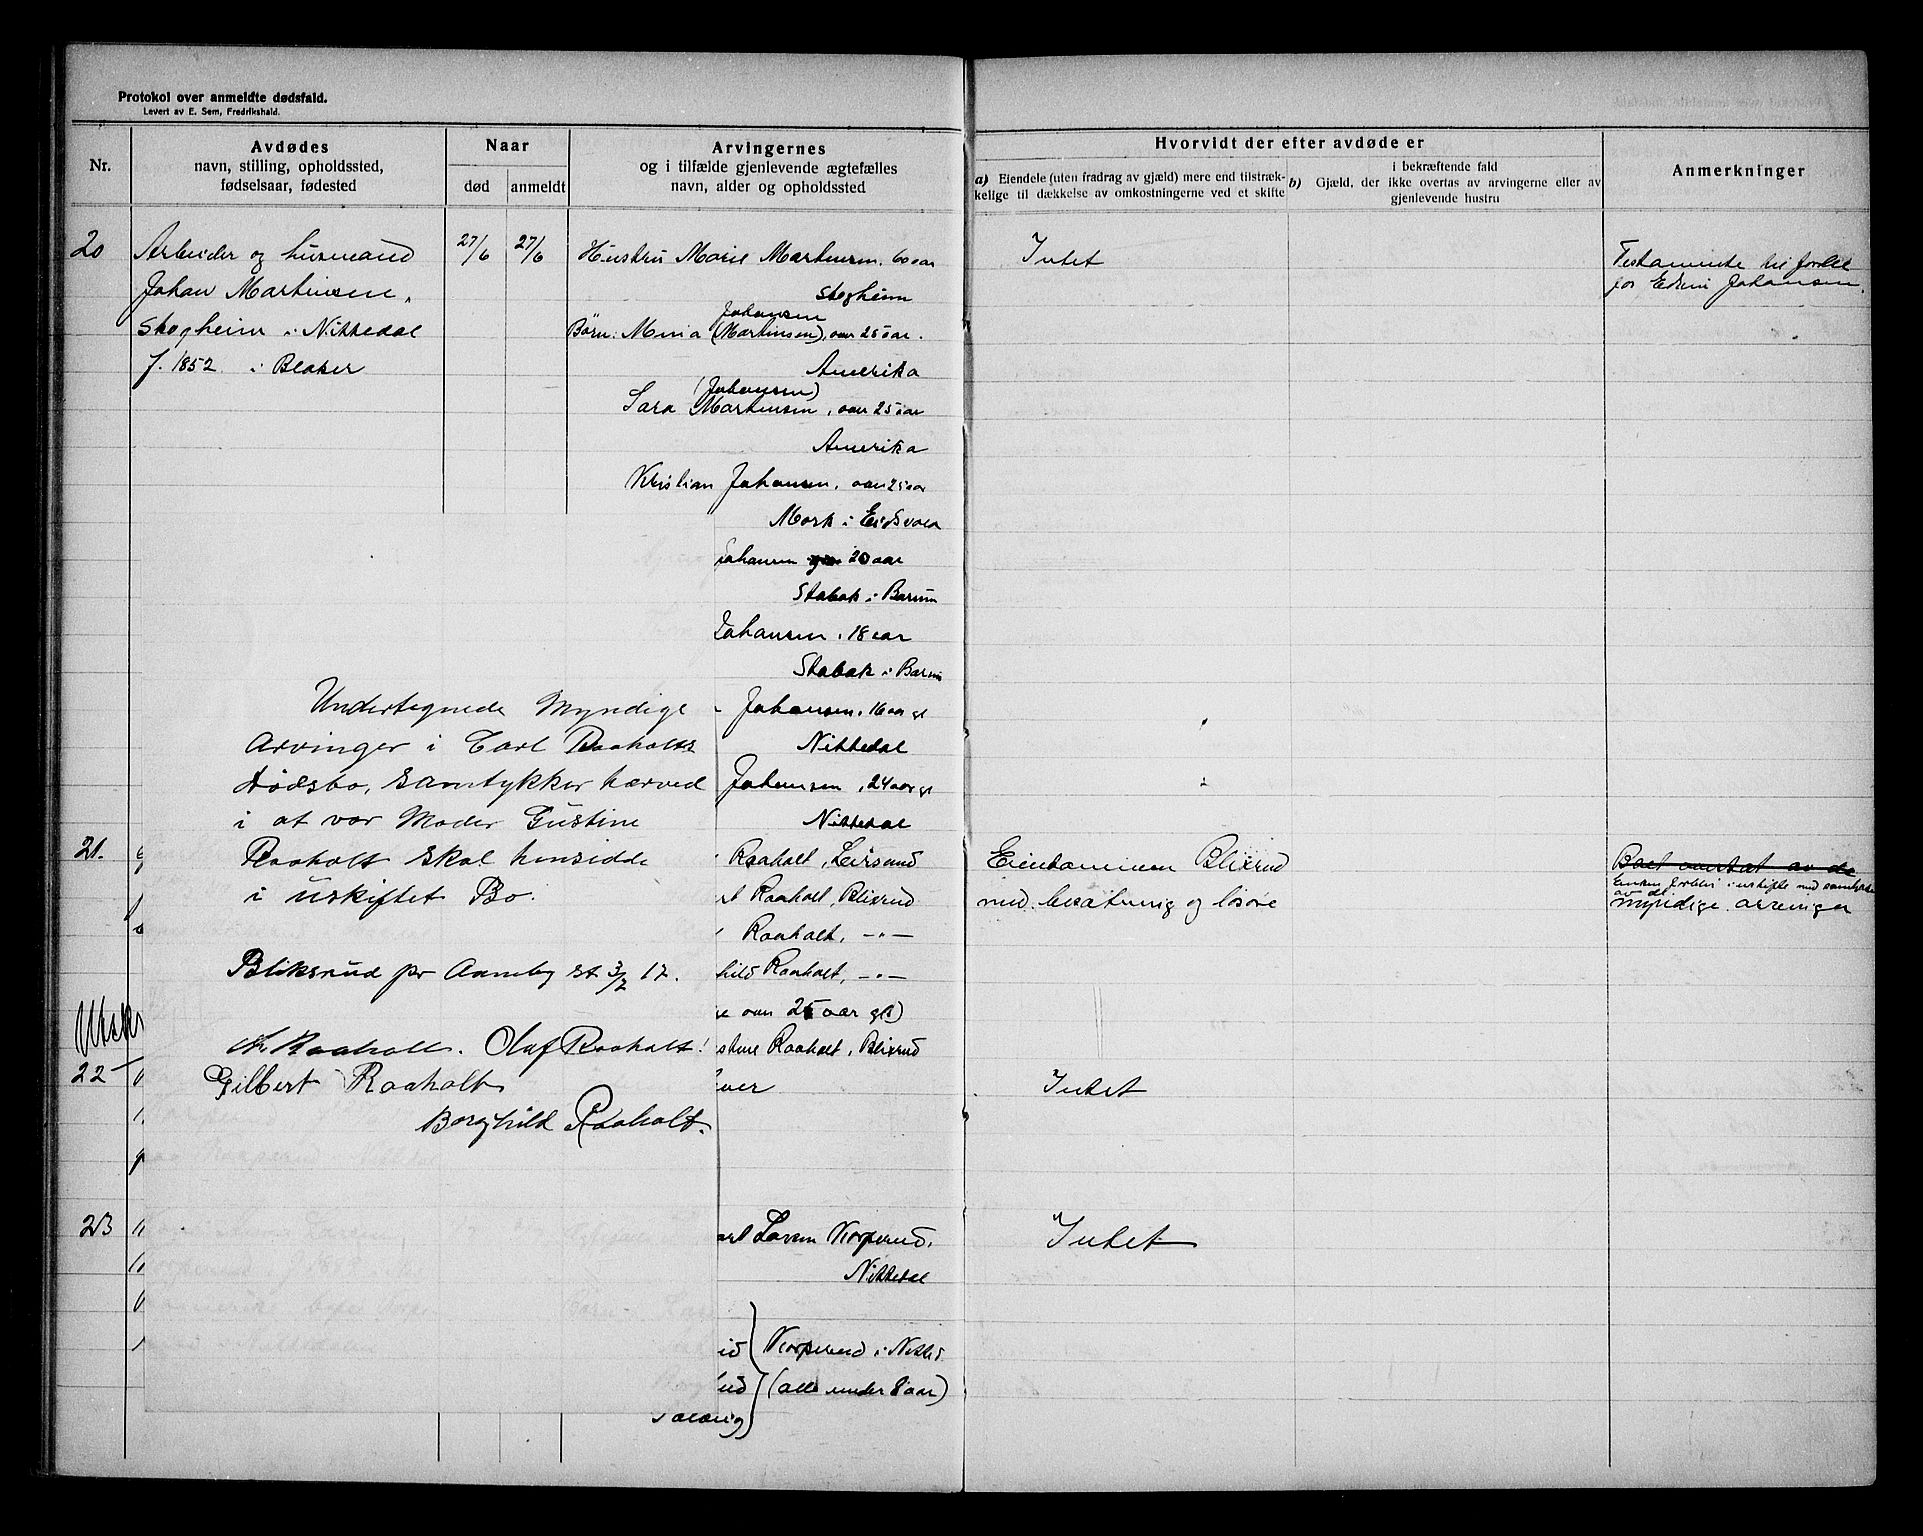 Protokol over anmeldte dødsfald.
Levert av E. Sem, Fredrikshald.
Nr.
Avdødes
navn, stilling, opholdssted,
fødselsaar, fødested
Naar
død
anmeldt
Arvingernes
og i tilfælde gjenlevende ægtefælles
navn, alder og opholdssted
Hvorvidt der efter avdøde er
a) Eiendele (uten fradrag av gjæld) mere end tilstræk-
kelige til dækkelse av omkostningerne ved et skifte
i bekræftende fald
b) Gjæld, der ikke overtas av arvingerne eller av
gjenlevende hustru
Anmerkninger
20
Arbeider og husmand
Johan Martinsen,
Skogheim i Nittedal
f. 1852 i Blaker
27/6
27/6
Hustru Marie Martinsen, 60 aar
Skogheim
Johansen
Børn: Maria (Martinsen), over 25 aar.
Amerika
(Johansen)
Sara Martinsen, over 25 aar
Amerika
Kristian Johansen, over 25 aar
Mork i Eidsvold
Johansen 20 aar
Stabæk i Bærum
Johansen, 18 aar
Stabæk i Bærum
Johansen, 16 aar gl
Nittedal
Johansen, 24 aar gl
Nittedal
Intet
Testamente til fordel
for Edvin Johansen.
Undertegnede Myndige
Arvinger i Carl Raaholts
Dødsbo, samtykker herved
i at vor Moder Gustine
Raaholt skal hensidde
i uskiftet Bo.
Bliksrud pr Aaneby st 3/7 17.
Raaholt. Olaf Raaholt!
Gilbert Raaholt
Borghild Raaholt.
21.
Raaholt, Leirsund
rt Raaholt, Blixrud
Raaholt, -"-
hild Raaholt, -"-
e over 25 aar gl)
stine Raaholt, Blixrud
Eiendommen Blixrud
med besætning og løsøre
Boet overtat av de
Enken forblir i uskifte med samtykke
av de
myndige arvinger
Utsk
22
Intet
23
arl Larsen Korperud.
Nittedal
id } Korperud i Nitted.
hild } (alle under 8 aar)
Solveig
Intet